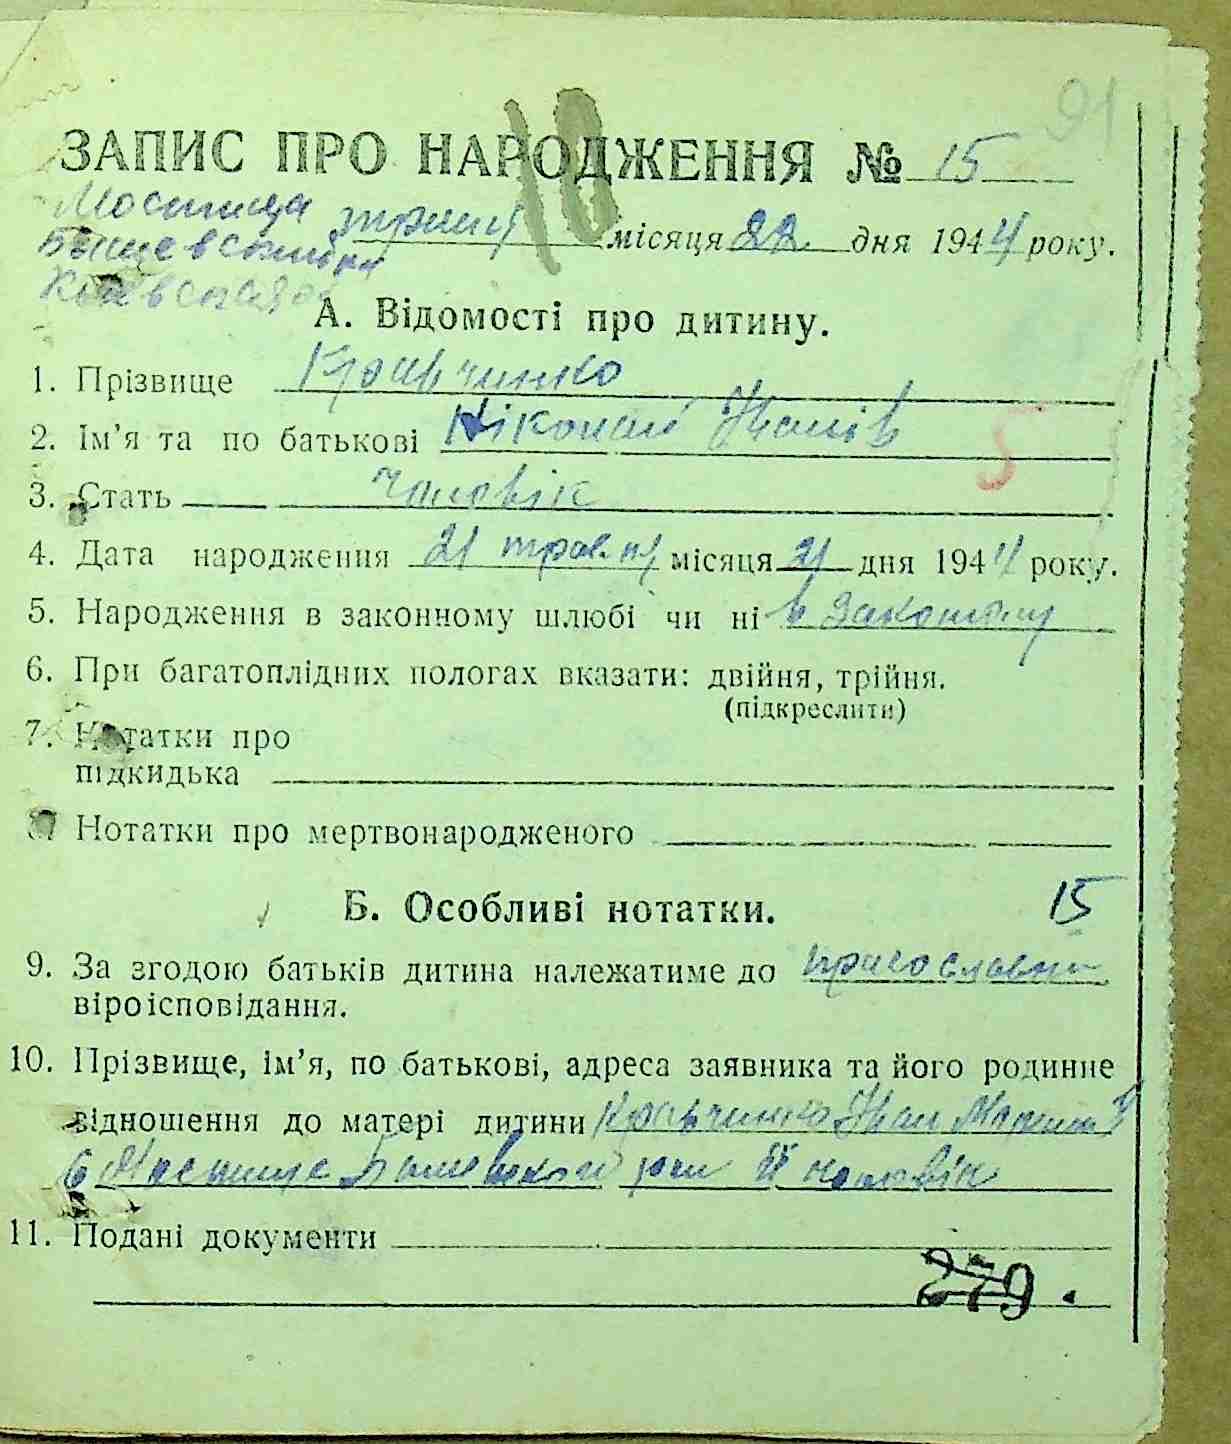 91
ЗАПИС ПРО НАРОДЖЕННЯ № 15
10
Мостища травня місяця 22 дня 1944 року.
Бишевский рн
А. Відомості про дитину.
1. Прізвище Кравчинко
2. Ім’я та по батькові Ніколай Іванів
5
3. Стать чоловік
4. Дата народження 21 травня місяця 21 дня 1944 року.
5. Народження в законному шлюбі чи ні в законому
6. При багатоплідних пологах вказати: двійня, трійня.
(підкреслити)
7. Нотатки про
підкидька
8. Нотатки про мертвонародженого
Б. Особливі нотатки.
15
9. За згодою батьків дитина належатиме до православн
віроісповідання.
10. Прізвище, ім’я, по батькові, адреса заявника та його родинне
відношення до матері дитини Кравчинко Іван
с Мостище рн її чоловік
11. Подані документи
279.